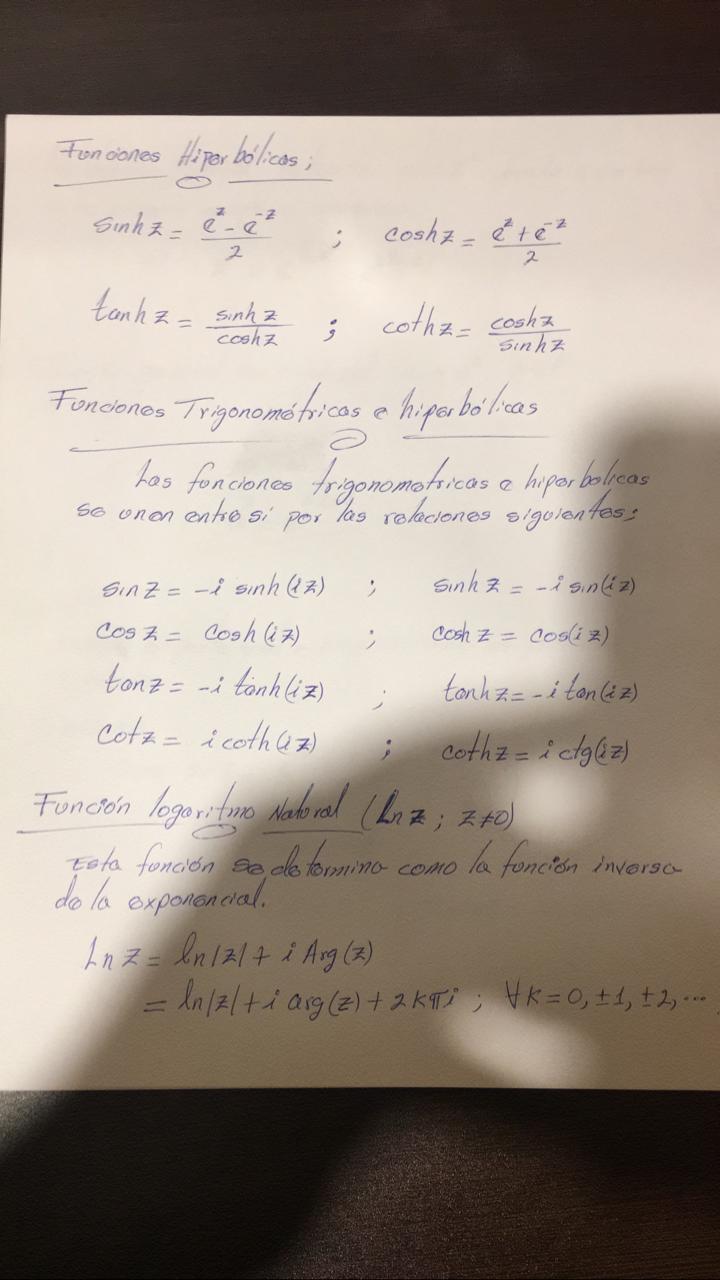 Funciones Hiperbólicas;
sinh z = (e^z - e^-z)/2 ; cosh z = (e^z + e^-z)/2
tanh z = sinh z/cosh z ; coth z = cosh z/sinh z
Funciones Trigonométricas e hiperbólicas
Las funciones trigonometricas e hiperbolicas
se unen entre sí por las relaciones siguientes:
sin z = -i sinh(iz) ; sinh z = -i sin(iz)
cos z = cosh(iz) ; cosh z = cos(iz)
tan z = -i tanh(iz) ; tanh z = -i tan(iz)
cot z = i coth(iz) ; coth z = i ctg(iz)
Función logaritmo Natural (Ln z ; z≠0)
Esta función se determina como la función inversa
de la exponencial.
Ln z = ln|z| + i Arg(z)
= ln|z| + i arg(z) + 2kπi ; ∀k = 0, ±1, ±2, ...